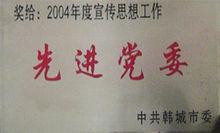 奖给：2004年度宣传思想工作
先进党委
中共韩城市委